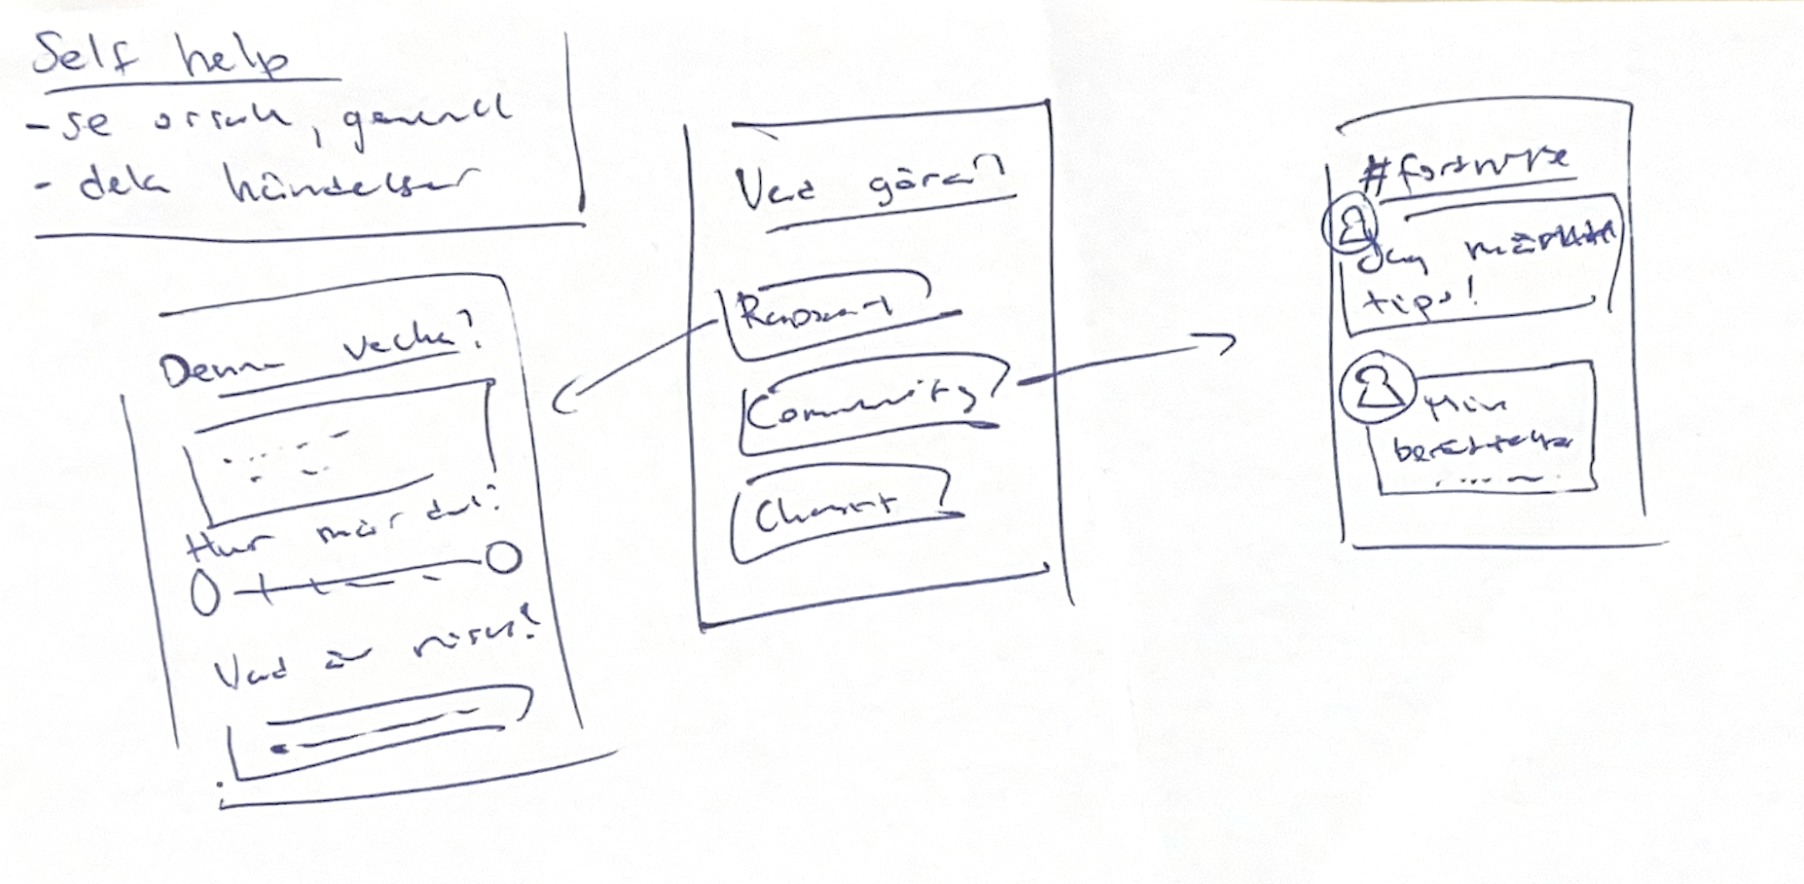 Self help
- se orsak, generell
- dela händelser
Denna vecka?
Hur mår du?
Vad är
Vad göra?
Rapport
Community
Chatt
#
Jag märkte
tips!
Min
berättelse